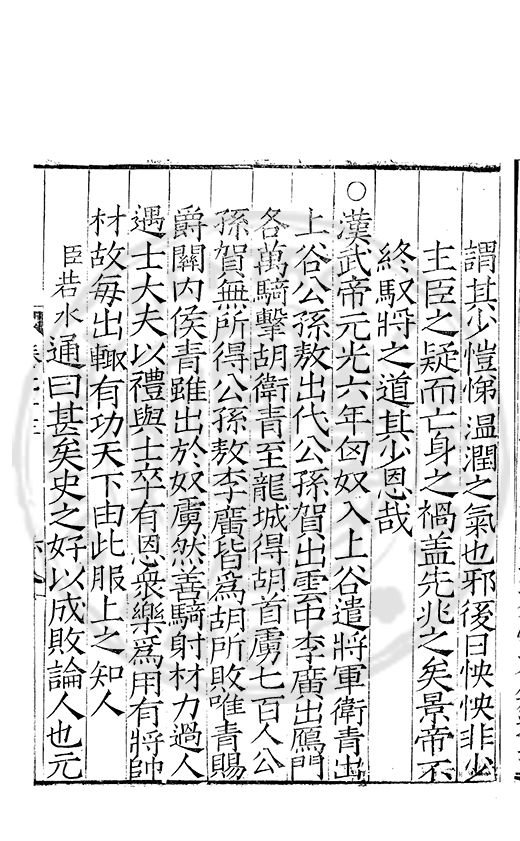 謂其少愷悌溫潤之氣也邪後日怏怏非少
主臣之疑而亡身之禍盖先兆之矣景帝不
終馭將之道其少恩哉
○漢武帝元光六年匈奴入上谷遣將軍衛青出
上谷公孫敖出代公孫賀出雲中李廣出鴈門
各萬騎擊胡衛青至龍城得胡首虜七百人公
孫賀無所得公孫敖李廣皆為胡所敗唯青賜
爵關內侯青雖出於奴虜然善騎射材力過人
遇士大夫以禮與士卒有恩衆樂為用有將帥
材故每出輙有功天下由此服上之知人
臣若水通曰甚矣史之好以成敗論人也元